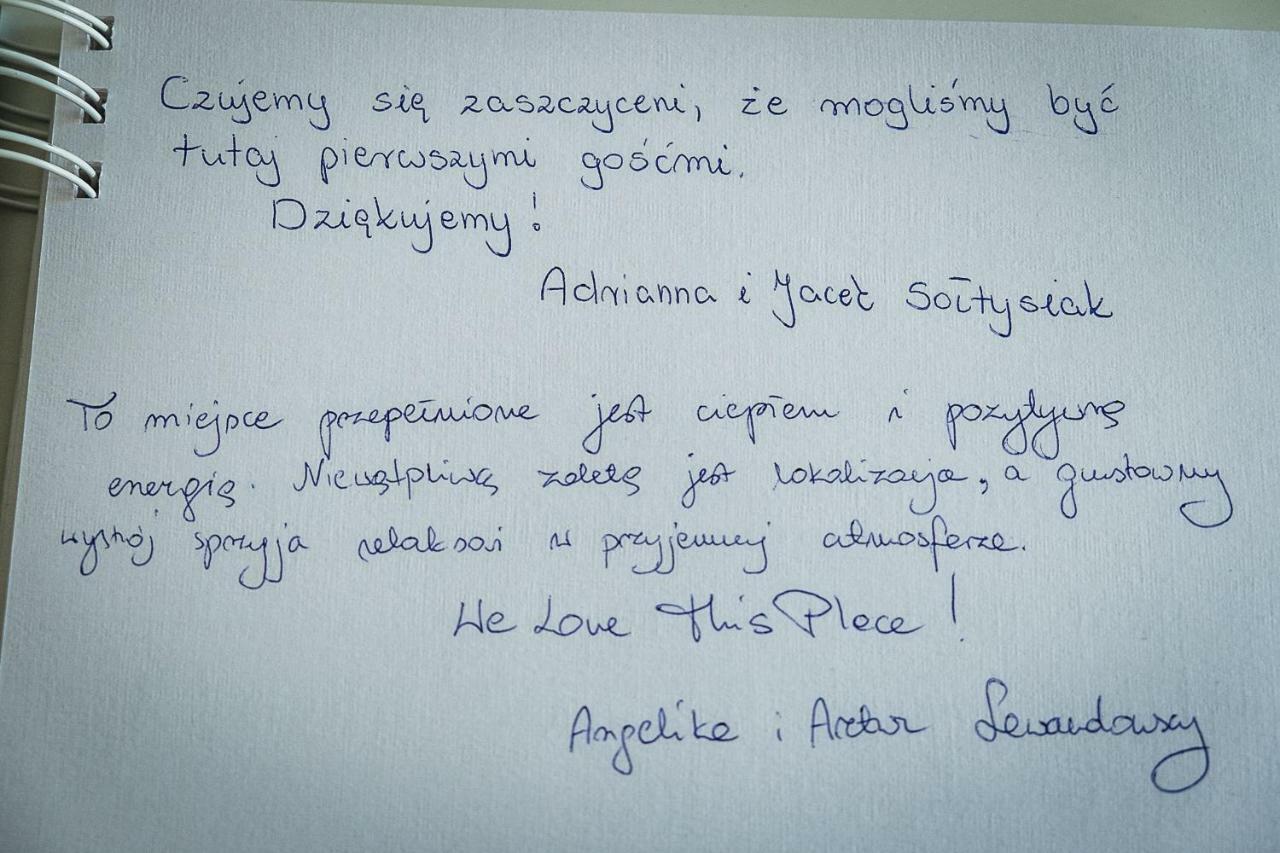 Czujemy się zaszczyceni, że mogliśmy być
tutaj pierwszymi gośćmi.
Dziękujemy!
Adrianna i Jacek Sołtysiak
To miejsce przepełnione jest ciepłem i pozytywną
energią. Niewątpliwą zaletą jest lokalizacja, a gustowny
wystrój sprzyja relaksowi w przyjemnej atmosferze.
We Love This Place!
Angelika i Artur Lewandowscy